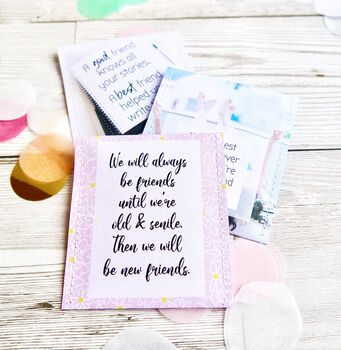 A good friend
knows all
your stories.
A best friend
helped
write
est
ver
re
d
We will always
be friends
until we're
old & senile.
Then we will
be new friends.